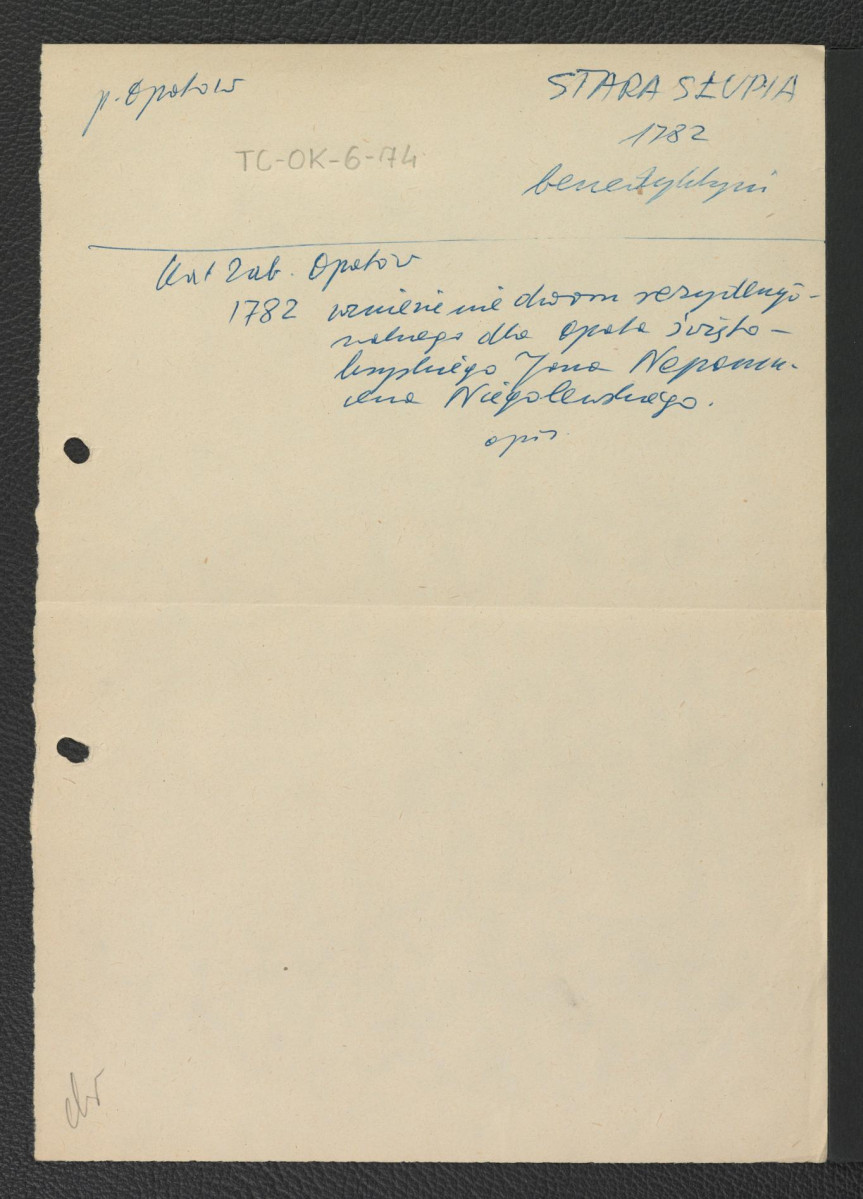 p. Opatów
STARA SŁUPIA
1782
benedyktyni
TC-OK-6-74
Kat Zab. Opatów
1782 wzniesienie dworu rezydencjo-
nalnego dla opata święto-
krzyskiego Jana Nepomu-
cena Niegolewskiego.
opis.